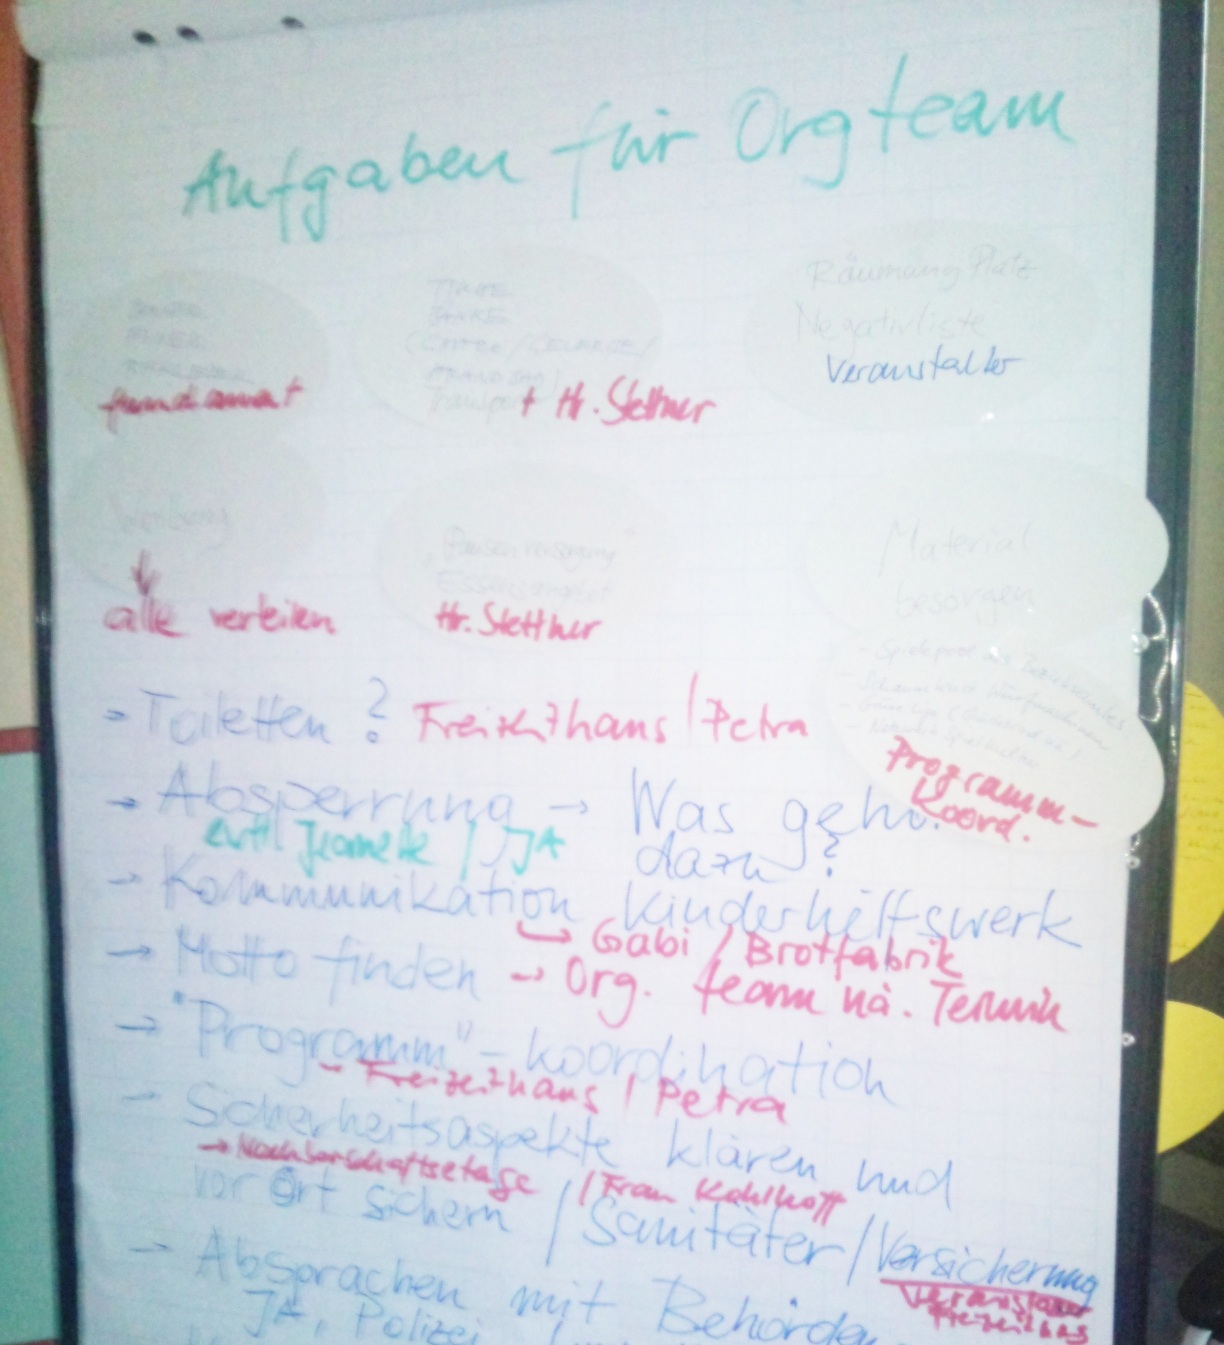 Aufgaben für Orgteam
FLYER
TISCHE
BÄNKE
Transport
Räumung Platz
Negativliste
Veranstalter
fundament
+ Hr. Stettner
Werbung
"Pausenversorgung"
Essensangebot
Material
besorgen
alle verteilen
Hr. Stettner
Programm-
Koord.
→ Toiletten ? Freizeithaus / Petra
→ Absperrung → Was gehört
evtl Jeanette / JA dazu?
→ Kommunikation Kinderhilfswerk
↳ Gabi / Brotfabrik
→ Motto finden → Org. team nä. Termin
→ "Programm" - koordination
- Freizeithaus / Petra
→ Sicherheitsaspekte klären und
→ Nachbarschaftsetage / Frau Kahlhoff
vor Ort sichern / Sanitäter / Versicherung
Veranstalter
Freizeithaus
→ Absprachen mit Behörden
JA, Polizei